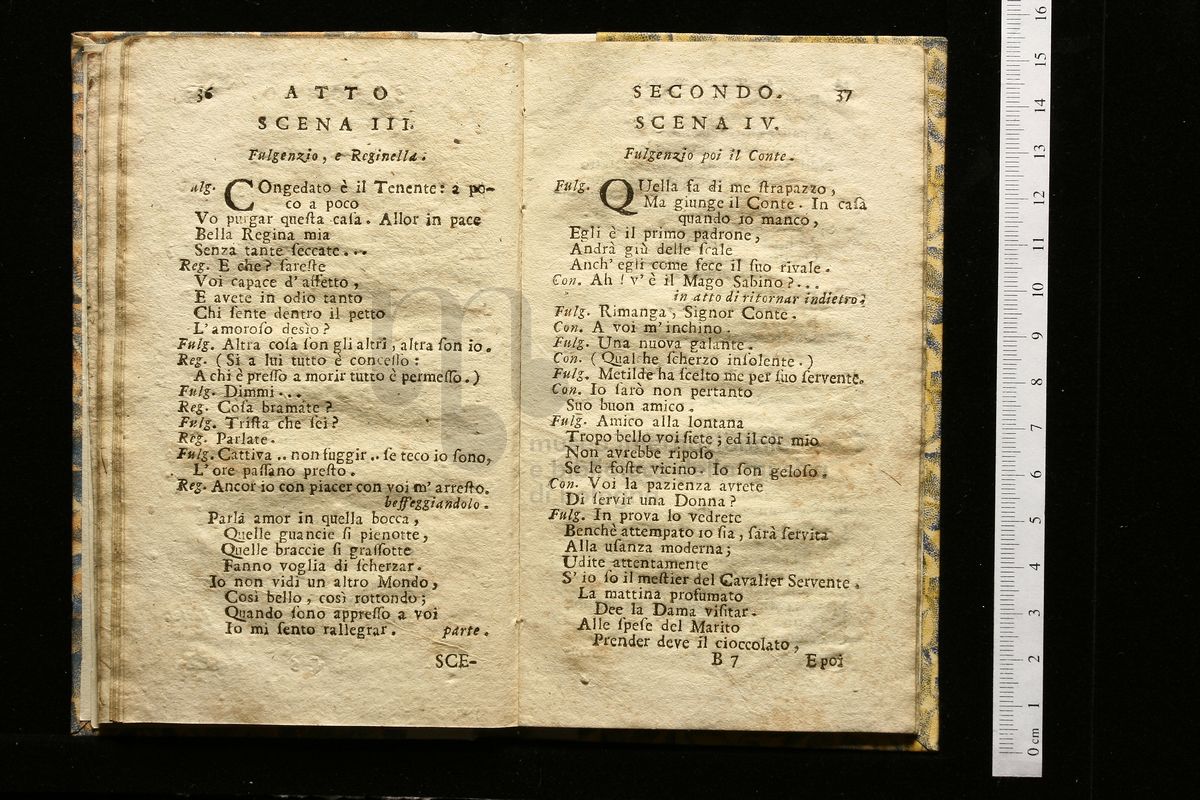 36 ATTO
SCENA III.
Fulgenzio, e Reginella.
ulg. COngedato è il Tenente: a po-
co a poco
Vo purgar queſta caſa. Allor in pace
Bella Regina mia
Senza tante ſeccate...
Reg. E che? ſareſte
Voi capace d'affetto,
E avete in odio tanto
Chi ſente dentro il petto
L'amoroſo desìo?
Fulg. Altra coſa ſon gli altri, altra ſon io.
Reg. (Si a lui tutto è conceſſo:
A chi è preſſo a morir tutto è permeſſo.)
Fulg. Dimmi...
Reg. Coſa bramate?
Fulg. Triſta che ſei?
Reg. Parlate.
Fulg. Cattiva .. non fuggir .. ſe teco io ſono,
L'ore paſſano preſto.
Reg. Ancor io con piacer con voi m'arreſto.
beffeggiandolo.
Parla amor in quella bocca,
Quelle guancie ſi pienotte,
Quelle braccie ſi graſſotte
Fanno voglia di ſcherzar.
Io non vidi un altro Mondo,
Così bello, così rottondo;
Quando ſono appreſſo a voi
Io mi ſento rallegrar. parte.
SCE-
SECONDO. 37
SCENA IV.
Fulgenzio poi il Conte.
Fulg. QUella fa di me ſtrapazzo,
Ma giunge il Conte. In caſa
quando io manco,
Egli è il primo padrone,
Andrà giù delle ſcale
Anch'egli come fece il ſuo rivale.
Con. Ah! v'è il Mago Sabino?...
in atto di ritornar indietro.
Fulg. Rimanga, Signor Conte.
Con. A voi m'inchino.
Fulg. Una nuova galante.
Con. (Qualche ſcherzo inſolente.)
Fulg. Metilde ha ſcelto me per ſuo ſervente.
Con. Io ſarò non pertanto
Suo buon amico.
Fulg. Amico alla lontana
Tropo bello voi ſiete; ed il cor mio
Non avrebbe ripoſo
Se le foſte vicino. Io ſon geloſo.
Con. Voi la pazienza avrete
Di ſervir una Donna?
Fulg. In prova lo vedrete
Benchè attempato io ſia, ſarà ſervita
Alla uſanza moderna;
Udite attentamente
S'io ſo il meſtier del Cavalier Servente.
La mattina profumato
Dee la Dama viſitar.
Alle ſpeſe del Marito
Prender deve il cioccolato,
B 7 E poi
0 cm 1 2 3 4 5 6 7 8 9 10 11 12 13 14 15 16